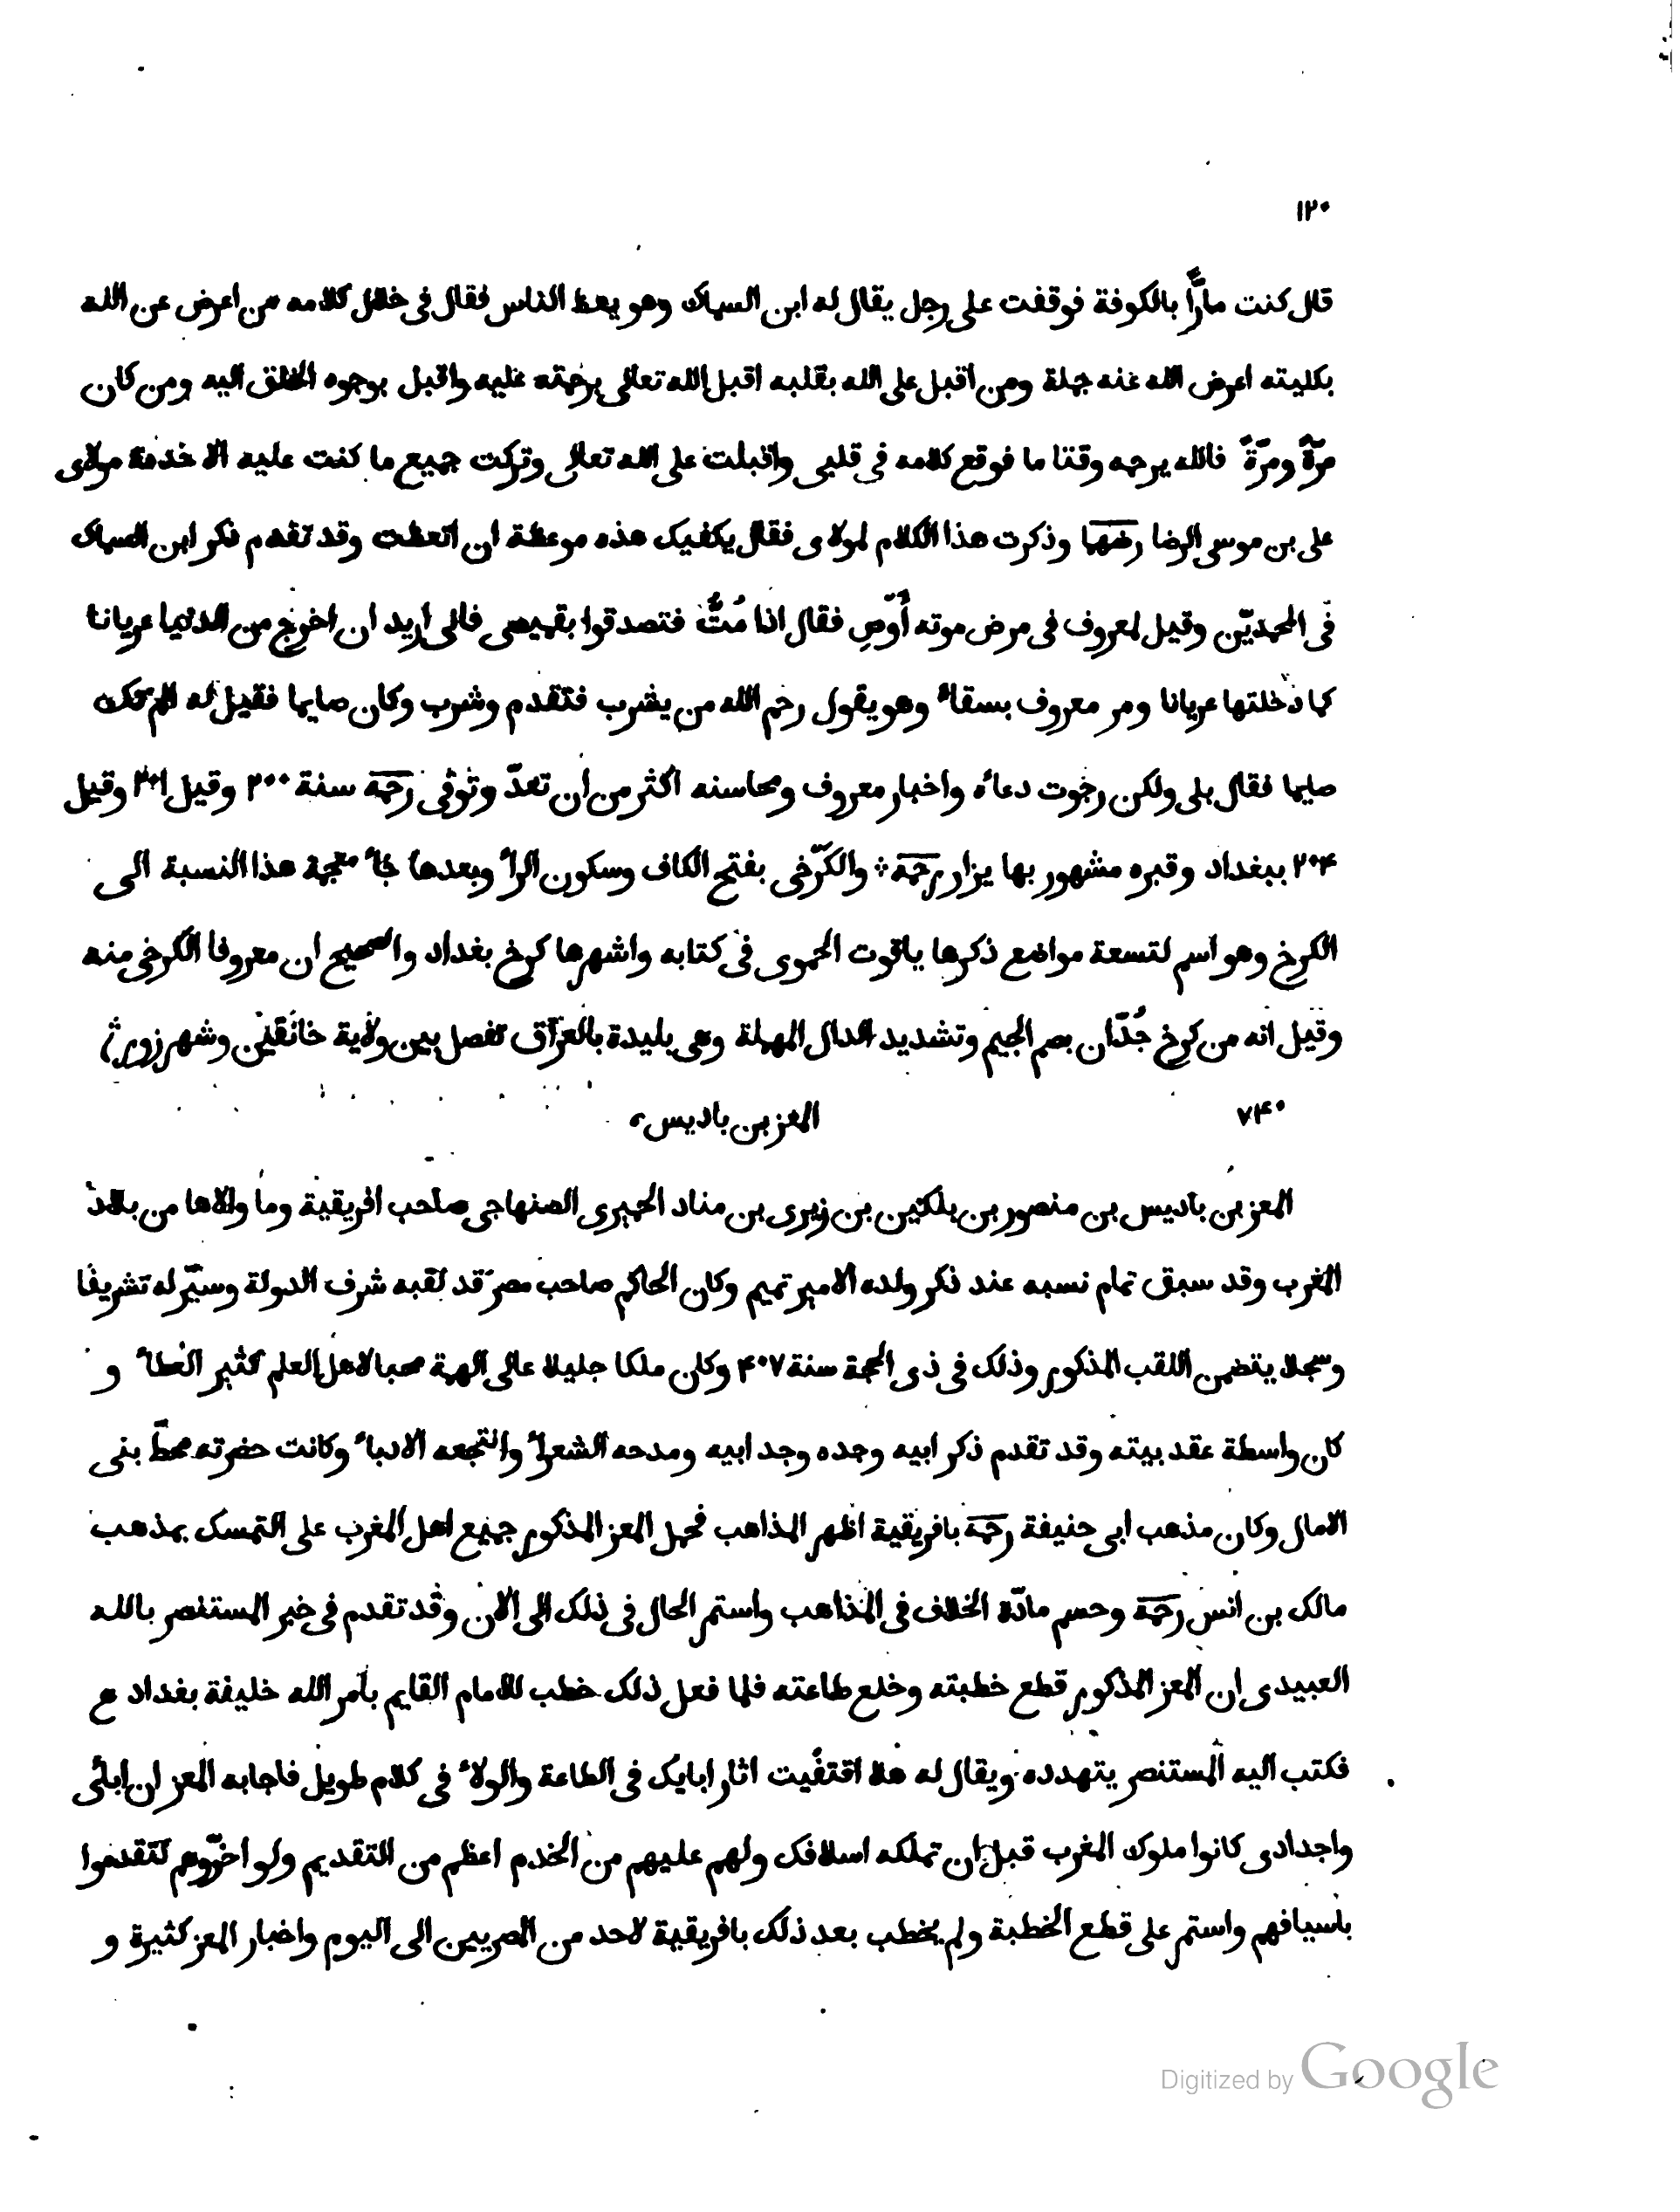 ١٢٠
قال كنت مارًّا بالكوفة فوقفت على رجل يقال له ابن السماك وهو يعظ الناس فقال فى خلال كلامه من اعرض عن الله
بكليته اعرض الله عنه جملة ومن اقبل على الله بقلبه اقبل الله تعالى برحمته عليه واقبل بوجوه الخلق اليه ومن كان
مرّةً ومرّةً فالله يرحمه وقتا ما فوقع كلامه فى قلبى واقبلت على الله تعالى وتركت جميع ما كنت عليه الا خدمة مولاى
على بن موسى الرضا رضهما وذكرت هذا الكلام لمولاى فقال يكفيك هذه موعظة ان اتعظت وقد تقدم ذكر ابن السماك
فى المحمديّن وقيل لمعروف فى مرض موته أَوّصِ فقال اذا مُتُّ فتصدقوا بقميصى فانى اريد ان اخرج من الدنيا عريانا
كما دخلتها عريانا ومر معروف بسقاءٍ وهو يقول رحم الله من يشرب فتقدم وشرب وكان صايما فقيل له الم تك
صايما فقال بلى ولكن رجوت دعاءه واخبار معروف ومحاسنه اكثر من ان تعدّ وتوفى رحمه سنة ٢٠٠ وقيل ٢٠١ وقيل
٢٠٤ ببغداد وقبره مشهور بها يزار رحمه ؞ والكَرْخى بفتح الكاف وسكون الراء وبعدها خاء معجمة هذا النسبة الى
الكرخ وهو اسم لتسعة مواضع ذكرها ياقوت الحموى فى كتابه واشهرها كرخ بغداد والصحيح ان معروفا الكرخى منه
وقيل انه من كرخ جُدّان بضم الجيم وتشديد الدال المهملة وهى بليدة بالعراق تفصل بين ولاية خانَقين وشهرزور
٧۴٠
المعز بن باديس،
المعز بن باديس بن منصور بن بلكين بن زيرى بن مناد الحميرى الصنهاجى صاحب افريقية وما والاها من بلاد
المغرب وقد سبق تمام نسبه عند ذكر ولده الامير تميم وكان الحاكم صاحب مصر قد لقبه شرف الدولة وسيّر له تشريفا
وسجلا يتضمن اللقب المذكور وذلك فى ذى الحجة سنة ۴٠٧ وكان ملكا جليلا عالى الهمة محبا لاهل العلم كثير العطاء و
كان واسطة عقد بيته وقد تقدم ذكر ابيه وجده وجد ابيه ومدحه الشعراء وانتجعه الادباء وكانت حضرته محطّ بنى
الامال وكان مذهب ابى حنيفة رحمه بافريقية اظهر المذاهب فحمل المعز المذكور جميع اهل المغرب على التمسك بمذهب
مالك بن انس رحمه وحسم مادّة الخلاف فى المذاهب واستمر الحال فى ذلك الى الان وقد تقدم فى خبر المستنصر بالله
العبيدى ان المعز المذكور قطع خطبته وخلع طاعته فلما فعل ذلك خطب للامام القايم بامر الله خليفة بغداد ع
فكتب اليه المستنصر يتهدده ويقال له هلا اقتفيت اثار ابايك فى الطاعة والولاء فى كلام طويل فاجابه المعز ان ابائى
واجدادى كانوا ملوك المغرب قبل ان تملكه اسلافك ولهم عليهم من الخدم اعظم من التقديم ولو اخّروهم لتقدموا
باسيافهم واستمر على قطع الخطبة ولم يخطب بعد ذلك بافريقية لاحد من المصريين الى اليوم واخبار المعز كثيرة و
Digitized by Google